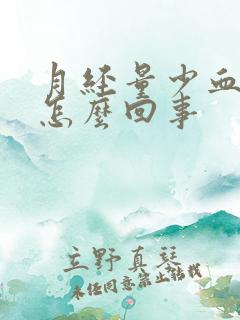 月经量少血
怎麼回事
立野真琴
未经同意禁止转载